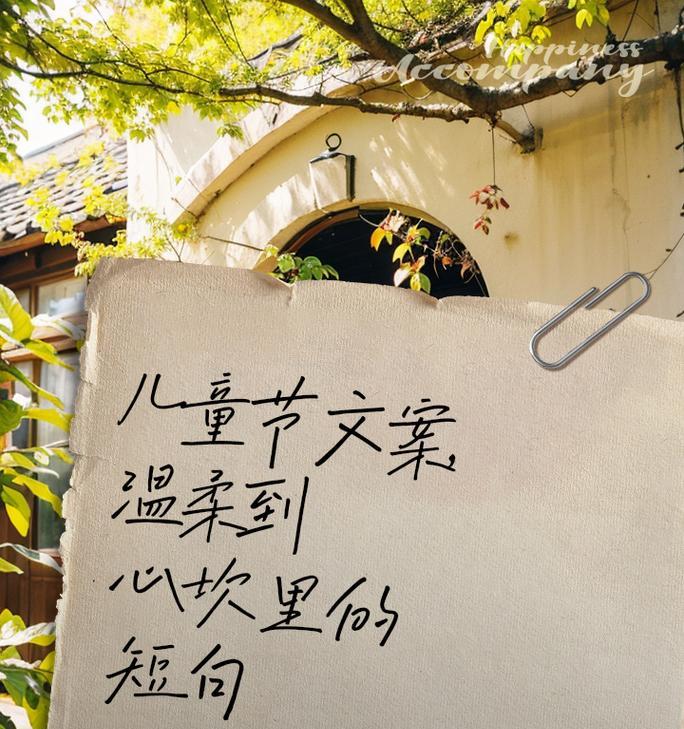 Happiness
Accompany
儿童节文案
温柔到
心坎里的
短句